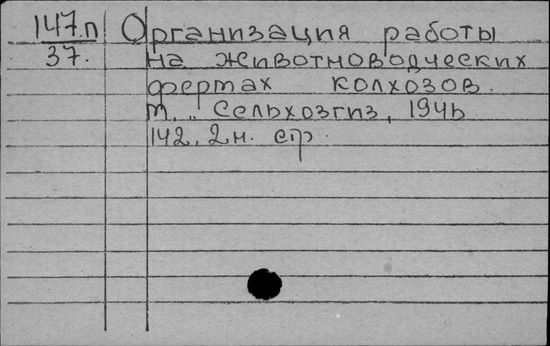 147.п Организация работы
37. на животноводческих
фермах колхозов.
М., Сельхозгиз, 1946
142, 2 н. стр.